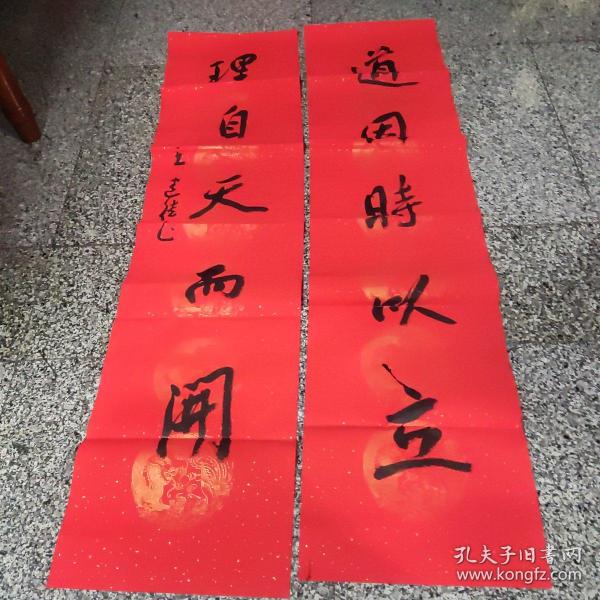 道因時以立
理自天而開
孔夫子旧书网
www.kongfz.com